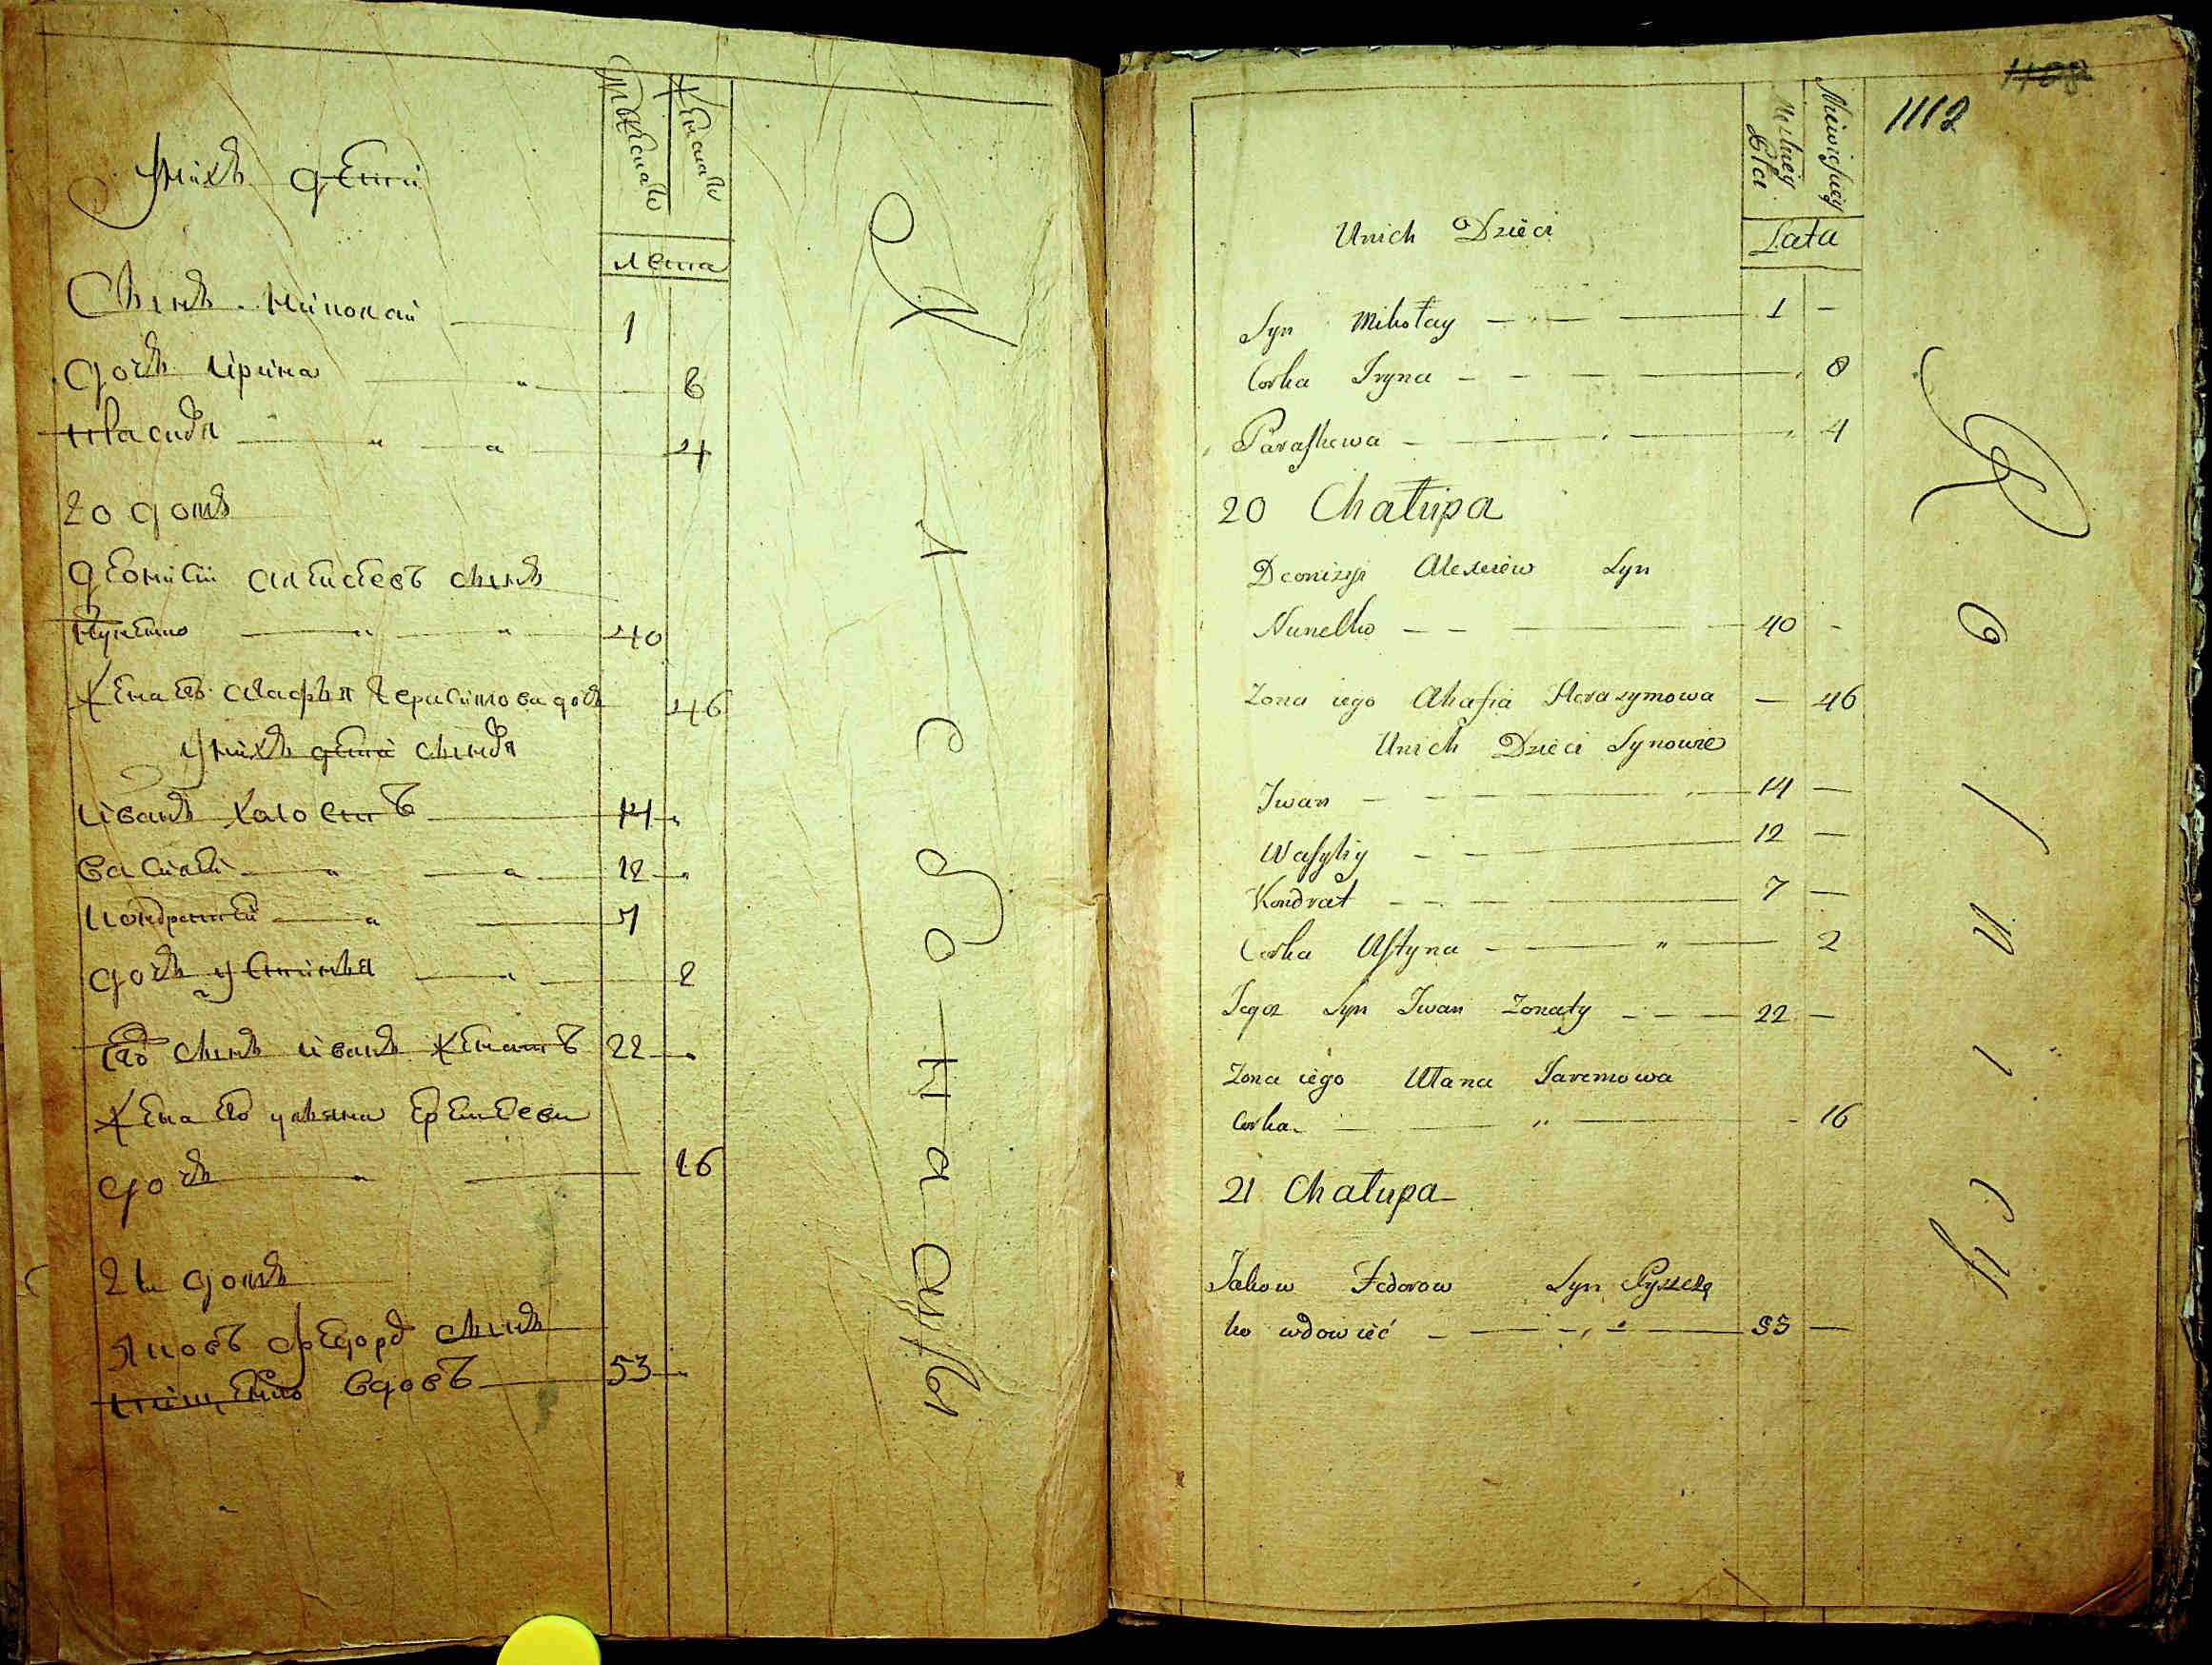 Унихъ дети
лета
Сынъ Николай 1
дочь Ирина 8
4
20 домъ
Деонисий Алексеевъ сынъ
Нунеlко 40
Жена его Агафья Герасимова дочь 46
Унихъ дети сынове
Иванъ холостъ 14
Василей 12
Кондратей 7
дочь Устинья 2
Его сынъ Иванъ женатъ 22
Жена его Ульяна Еремеева
дочь 16
21 домъ
Яковъ Федоровъ сынъ
Пищейко вдовъ 53
1408
1112
Męzkiey Płci
Niewieściey
Lata
Unich Dzieci
Syn Mikołay 1
Corka Iryna 8
Paraskewa 4
20 Chałupa
Deonizyi Alexiew Syn
Nunelko 40
Zona iego Ahafia Harasymowa 46
Unich Dzieci Synowie
Iwan 14
Wasyliy 12
Kondrat 7
Corka Ustyna 2
Iegoz Syn Iwan Zonaty 22
Zona iego Ulana Jaremowa
Corka 16
21 Chałupa
Jakow Fedorow Syn Pyszczę
ko wdowieć 53